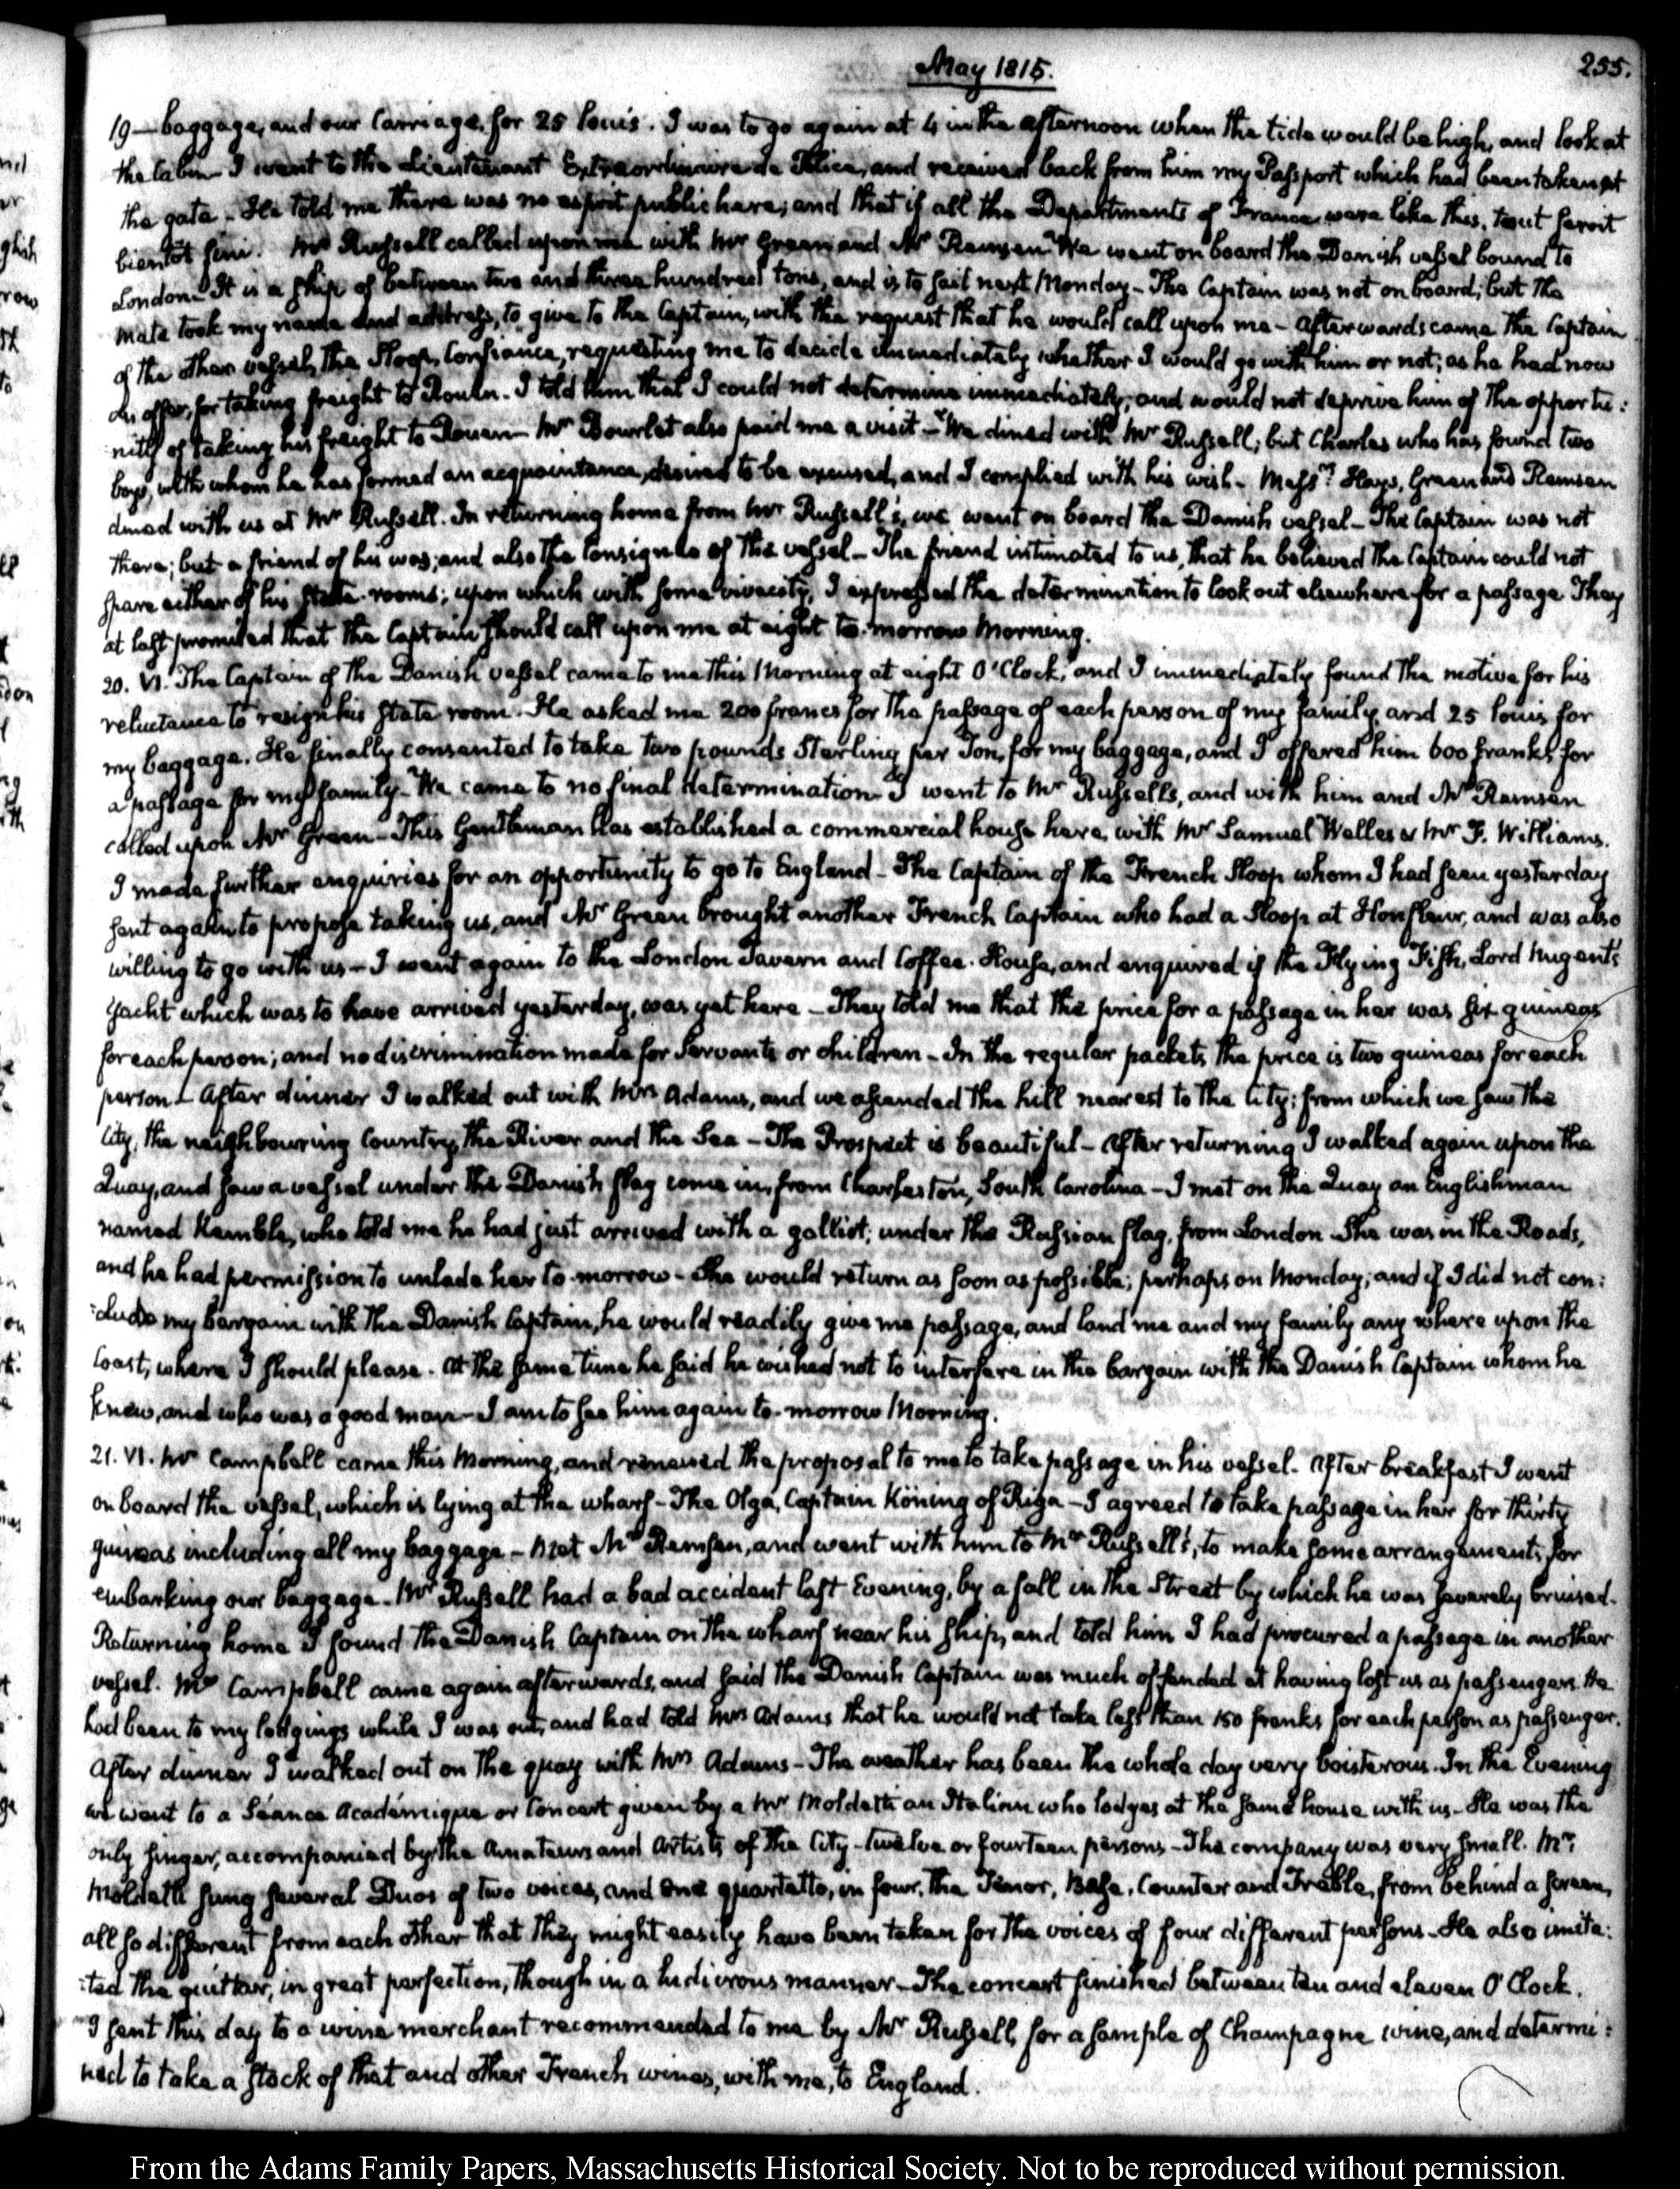 May 1815.
255.
19— baggage, and our Carriage, for 25 Louis. I was to go again at 4 in the afternoon when the tide would be high, and look at
the Cabin— I went to the Lieutenant Extraordinaire de Police, and received back from him my Passport which had been taken at
the gate— He told me there was no esprit public here; and that if all the Departments of France were like this, tout seroit
bientôt fini. Mr Russell called upon me with Mr Green and Mr Ramsen— We went on board the Danish vessel bound to
London— It is a ship of between two and three hundred tons, and is to sail next Monday— The Captain was not on board; but the
mate took my name and address, to give to the Captain, with the request that he would call upon me— Afterwards came the Captain
of the other vessel, the Sloop, Confiance, requesting me to decide immediately whether I would go with him or not; as he had now
an offer, for taking freight to Rouen. I told him that I could not determine immediately, and would not deprive him of the opportu:
nity of taking his freight to Rouen— Mr Bourlet also paid me a visit— We dined with Mr Russell; but Charles who has found two
boys, with whom he has formed an acquaintance, desired to be excused, and I complied with his wish— Messrs Hays, Green and Ramsen
dined with us at Mr Russell. In returning home from Mr Russell's, we went on board the Danish vessel— The Captain was not
there; but a friend of his was; and also the Consignee of the vessel— The friend intimated to us, that he believed the Captain could not
spare either of his state-rooms; upon which with some vivacity, I expressed the determination to look out elsewhere for a passage They
at last promised that the Captain should call upon me at eight to-morrow Morning.
20. VI. The Captain of the Danish vessel came to me this Morning at eight O'Clock, and I immediately found the motive for his
reluctance to resign his state room. He asked me 200 francs for the passage of each person of my family, and 25 Louis for
my baggage. He finally consented to take two pounds Sterling per Ton, for my baggage, and I offered him 600 franks for
a passage for my family— We came to no final determination— I went to Mr Russells, and with him and Mr Ramsen
called upon Mr Green— This Gentleman has established a commercial house here, with Mr Samuel Welles & Mr F. Williams.
I made further enquiries for an opportunity to go to England— The Captain of the French Sloop whom I had seen yesterday
sent again to propose taking us, and Mr Green brought another French Captain who had a Sloop at Honfleur, and was also
willing to go with us— I went again to the London Tavern and Coffee-House, and enquired if the Flying Fish, Lord Nugent's
yacht which was to have arrived yesterday, was yet here— They told me that the price for a passage in her was six guineas
for each person; and no discrimination made for Servants or children— In the regular packets the price is two guineas for each
person— After dinner I walked out with Mrs Adams, and we ascended the hill nearest to the City: from which we saw the
City, the neighbouring Country, the River and the Sea— The Prospect is beautiful— After returning I walked again upon the
Quay, and saw a vessel under the Danish flag come in, from Charleston, South Carolina— I met on the Quay an Englishman
named Kemble, who told me he had just arrived with a galliot; under the Russian flag, from London She was in the Roads,
and he had permission to unlade her to-morrow— She would return as soon as possible; perhaps on Monday; and if I did not con:
:clude my bargain with the Danish Captain, he would readily give me passage, and land me and my family any where upon the
Coast, where I should please. At the same time he said he wished not to interfere in the bargain with the Danish Captain whom he
knew, and who was a good man— I am to see him again to-morrow Morning.
21. VI. Mr Campbell came this Morning, and renewed the proposal to me to take passage in his vessel. After breakfast I went
on board the vessel, which is lying at the wharf— The Olga, Captain Köning of Riga— I agreed to take passage in her for thirty
guineas including all my baggage— Met Mr Ramsen, and went with him to Mr Russell's, to make some arrangements for
embarking our baggage. Mr Russell had a bad accident last Evening, by a fall in the Street by which he was severely bruised.
Returning home I found the Danish Captain on the wharf near his ship, and told him I had procured a passage in another
vessel. Mr Campbell came again afterwards, and said the Danish Captain was much offended at having lost us as passengers. He
had been to my lodgings while I was out, and had told Mrs Adams that he would not take less than 150 franks for each person as passenger.
After dinner I walked out on the quay with Mrs Adams— The weather has been the whole day very boisterous. In the Evening
we went to a Séance Académique or Concert given by a Mr Moldetti an Italian who lodges at the same house with us— He was the
only singer, accompanied by the Amateurs and Artists of the City— twelve or fourteen persons— The company was very small. Mr
Moldetti sung several Duos of two voices, and one quartetto, in four, the Tenor, Base, Counter and Treble, from behind a screen,
all so different from each other that they might easily have been taken for the voices of four different persons— He also imita:
:ted the guittar, in great perfection, though in a ludicrous manner— The concert finished between ten and eleven O'Clock.
I sent this day to a wine merchant recommended to me by Mr Russell, for a sample of Champagne wine, and determi:
ned to take a stock of that and other French wines, with me, to England.
From the Adams Family Papers, Massachusetts Historical Society. Not to be reproduced without permission.